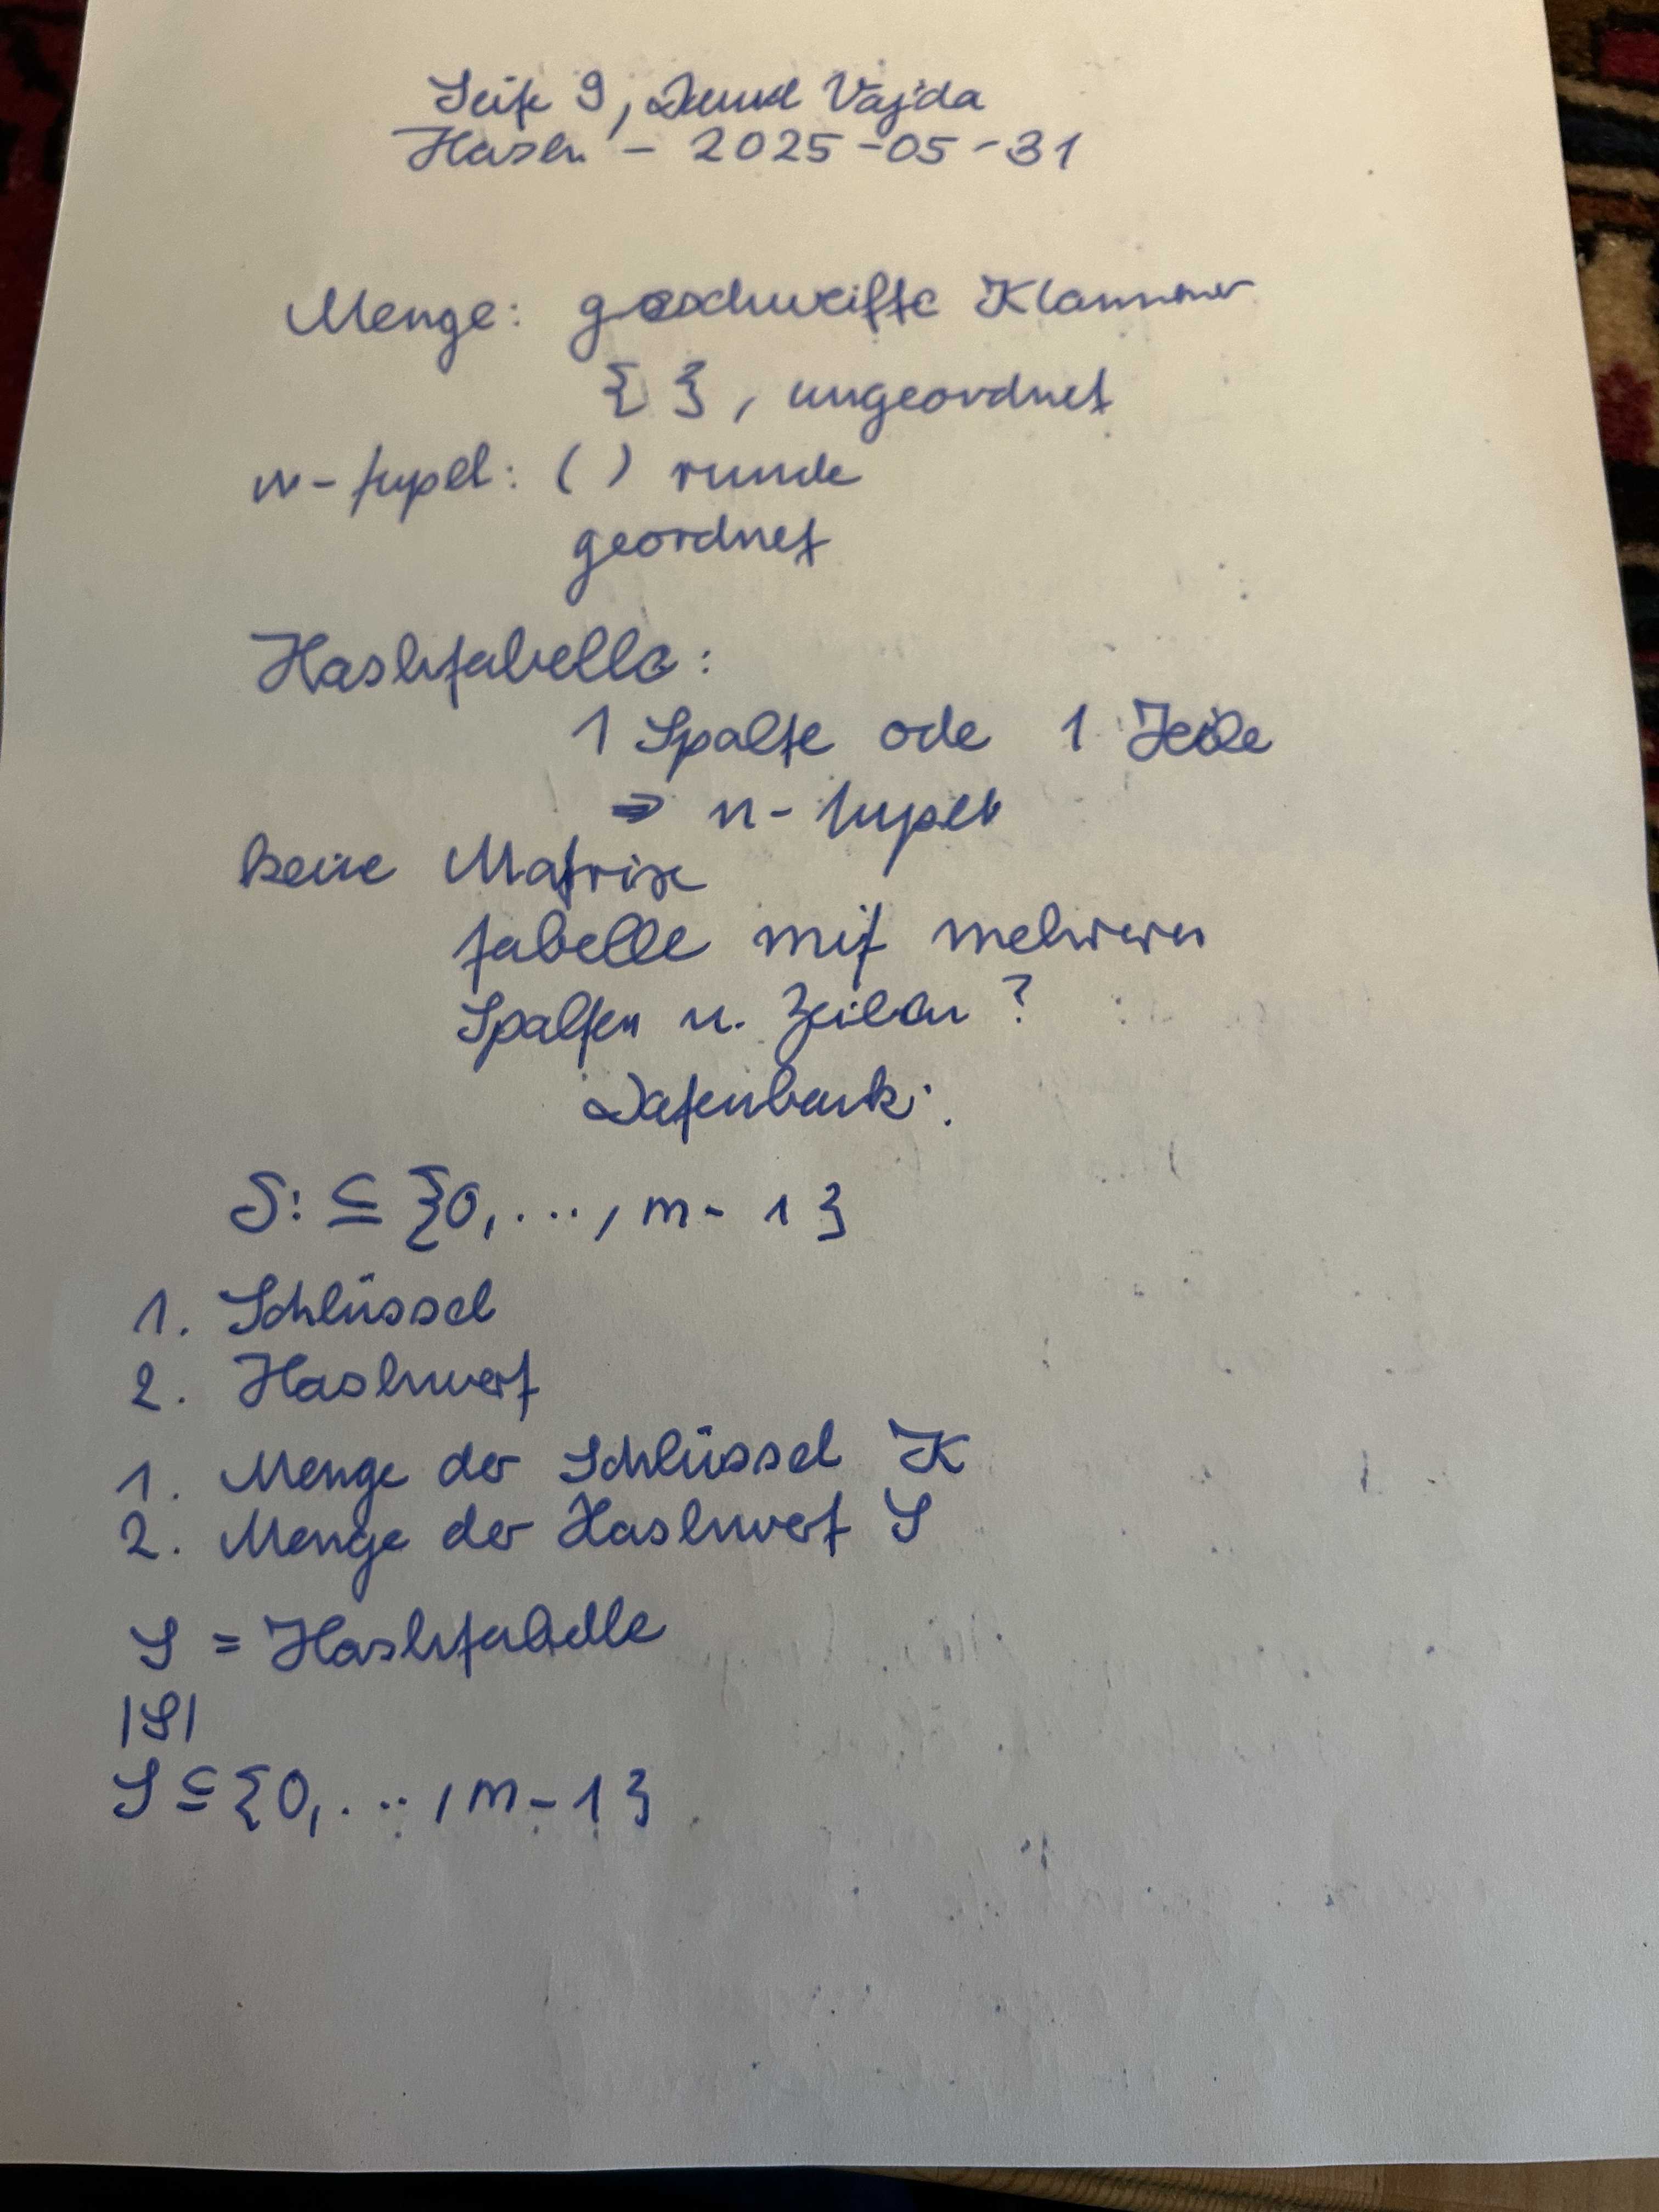 Seite 9, David Vajda
Hash - 2025-05-31
Menge: geschweifte Klammer
{ }, ungeordnet
n-tupel: ( ) runde
geordnet
Hashtabelle:
1 Spalte ode 1 Zeile
⇒ n-tupel
keine Matrix
tabelle mit mehreren
Spalten u. Zeilen?
Datenbank:
S: ⊆ {0, ..., m-1}
1. Schlüssel
2. Hashwert
1. Menge der Schlüssel K
2. Menge der Hashwert S
S = Hashtabelle
|S|
S ⊆ {0, ..., m-1}